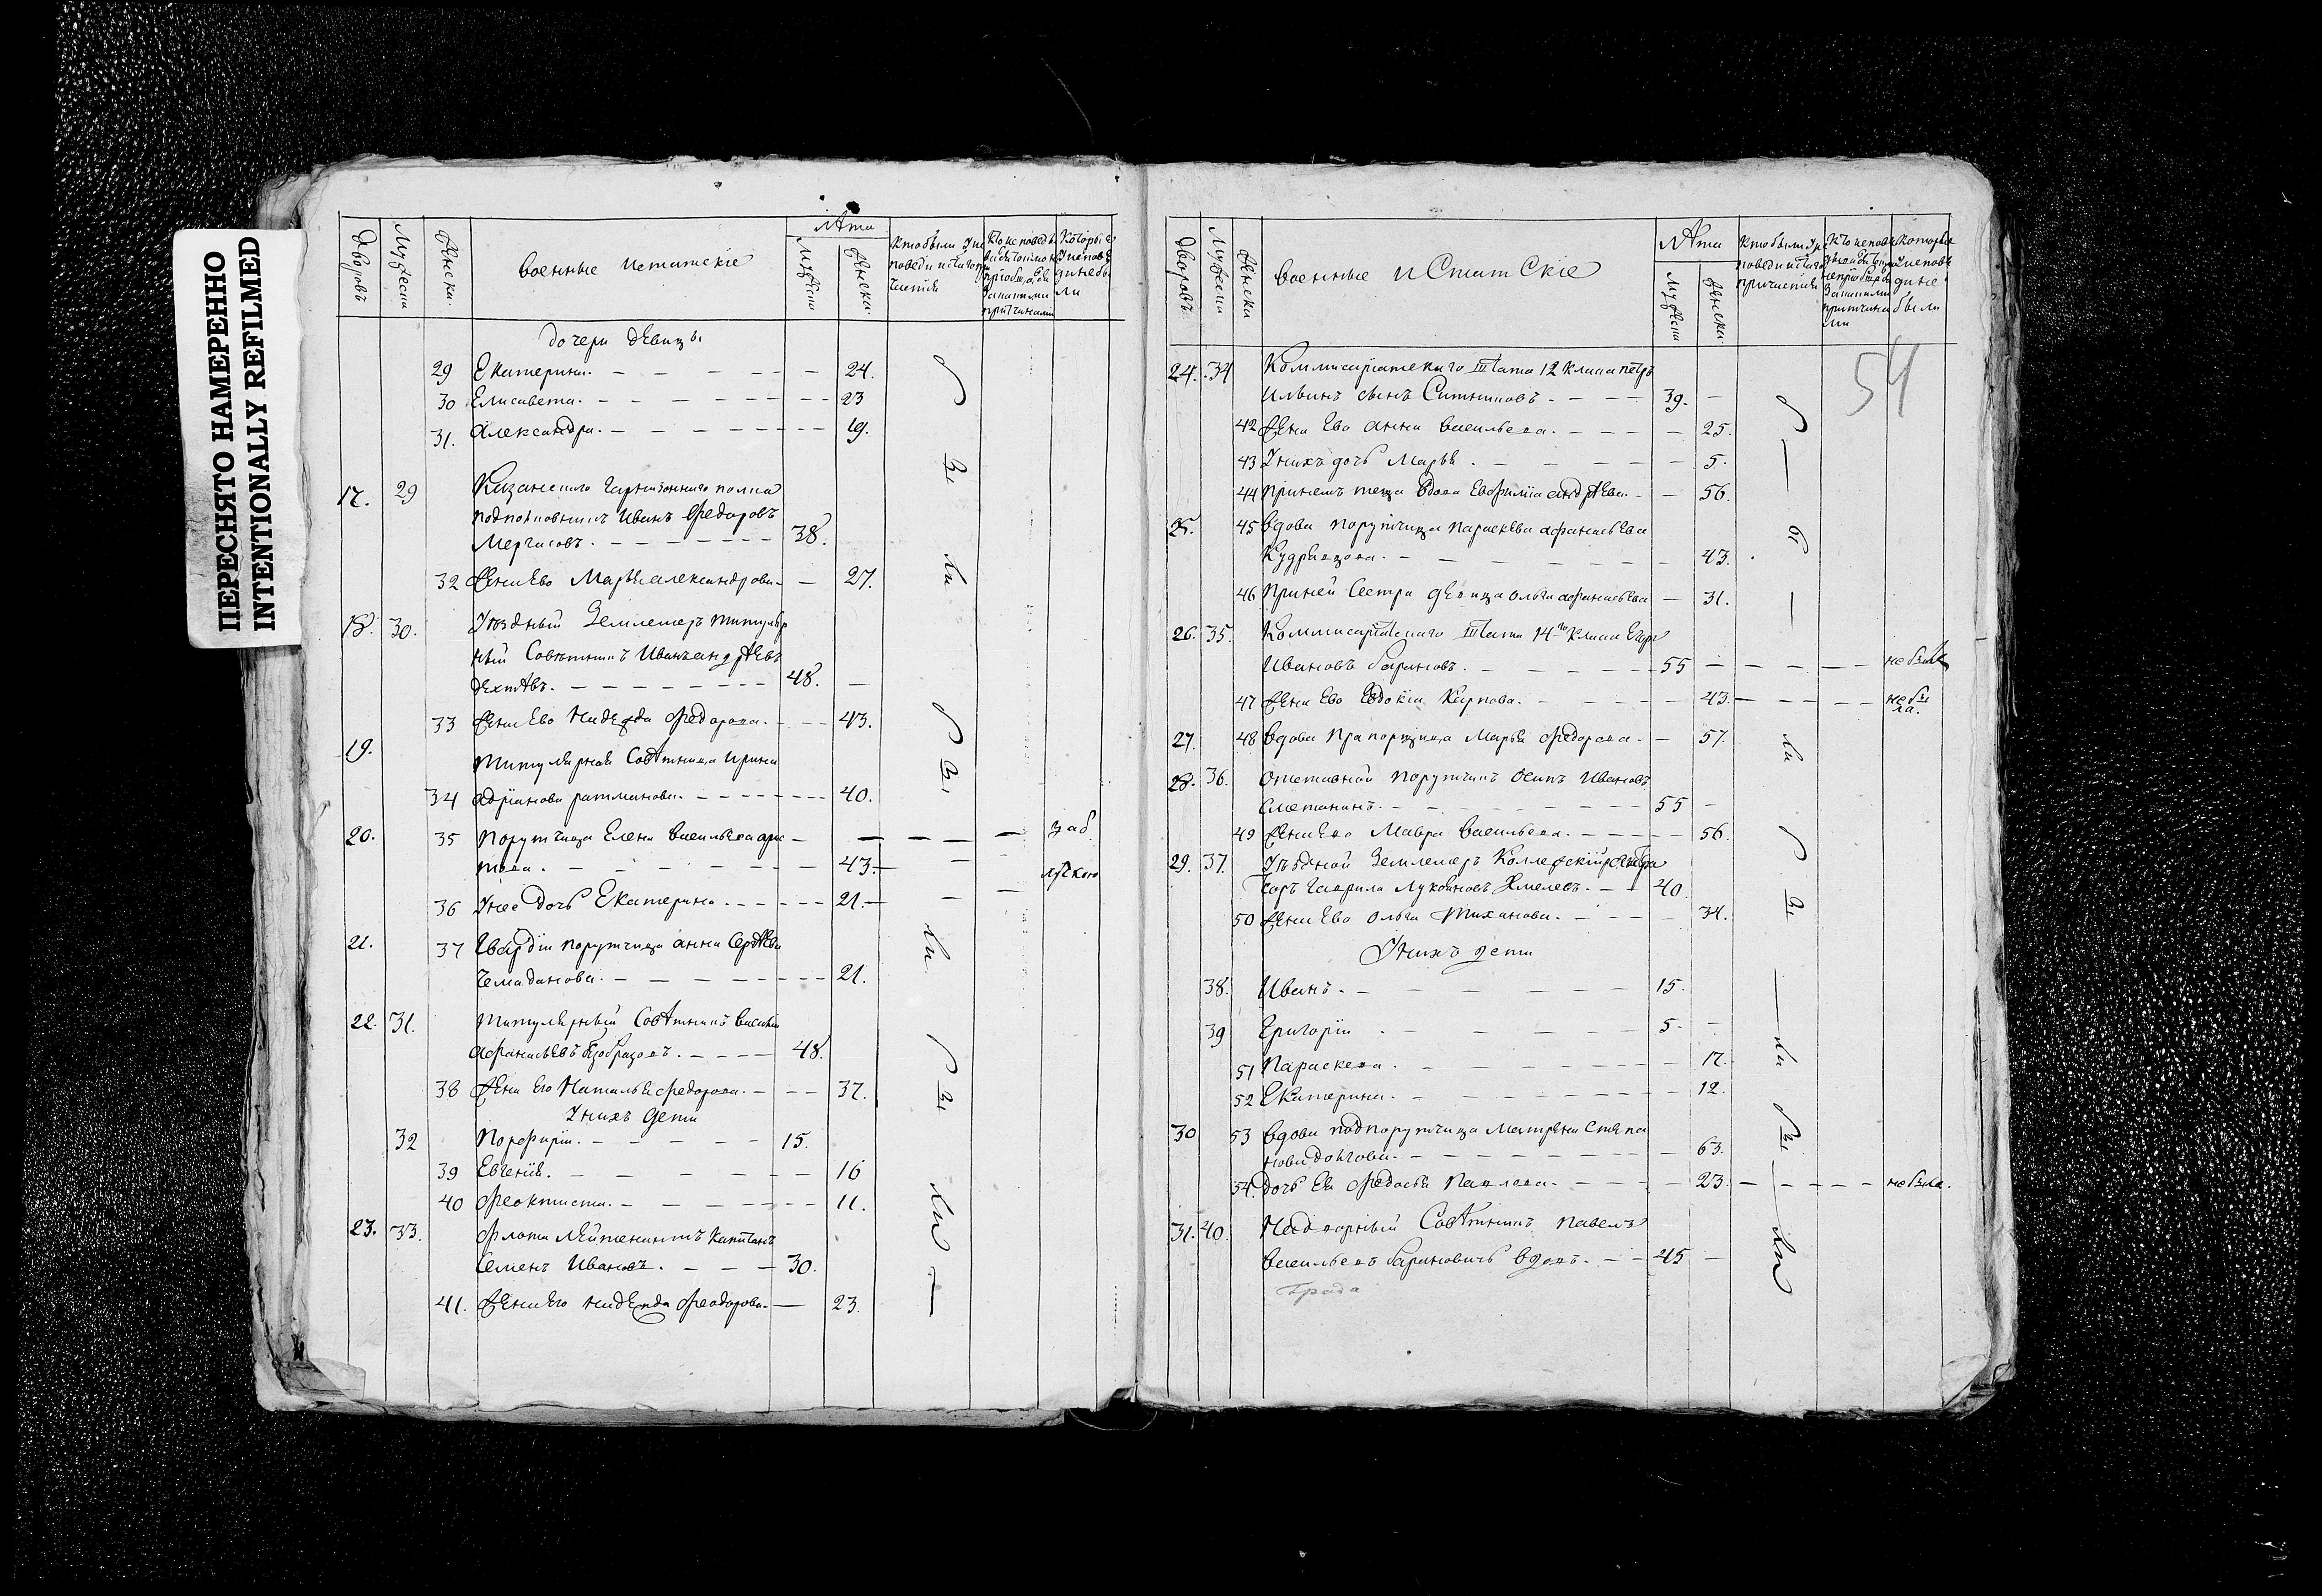 ПЕРЕСНЯТО НАМЕРЕННО
INTENTIONALLY REFILMED
дворовъ
Мужеска
Женска.
военные истатскіе
лѣта
Мужеска
Женска.
Кто были у ис
поведи и с.
Кто исповед
Которые
у исповѣ
ди небы
ли
дочери дѣвицы
29 Екатерина. 24.
30 Елисавета. 23
31. Александра. 19.
17. 29 Казанскаго Гарнизоннаго полка
подполковникъ Иванъ Федоровъ
38.
32 Жена Ево Марья Александрова 27.
18. 30. Уѣздный Землемеръ титуляр
ный Совѣтникъ Иванъ Андрѣевъ
48.
33 Жена Ево Надежда Федорова. 43.
19. Титулярная Совѣтница Ирина
34 Адріанова ратманова. 40.
20. 35 Порутчица Елена Васильева
43. заб.
36 У нее дочь Екатерина 21.
21. 37 Гвардіи порутчица Анна Сергѣева
Чемаданова. 21.
22. 31. Титулярный Совѣтникъ Василій
Афанасьевъ 48.
38 Жена Его Наталья Федорова. 37.
У нихъ дети
32 Порфирій. 15.
39 Евгенія. 16
40 Феоктиста. 11.
23. 33. Флота Лейтенантъ Капитанъ
Семенъ Ивановъ. 30.
41. Жена Его Надежда Феодорова. 23.
были
были
были
дворовъ
Мужеска
Женска
военные и Статскіе
лѣта
Мужеска
Женска
Кто были у ис
поведи и с.
причастія
Кто испов
которые
у исповѣ
ди не
были
54
24. 34 Коммисаріатскаго Штата 12 Класа петръ
Ильинъ сынъ Ситниковъ. 39.
42 Жена Ево Анна Васильева. 25.
43 У нихъ дочь Марья. 5.
44 При немъ теща вдова Евфимія Андрѣева. 56.
25. 45 вдова порутчица Параскева Афанасьева
Кудрявцова. 43.
46 При ней Сестра девица Ольга Афанасьева 31.
26. 35. Коммисаріатскаго Штата 14го Класа Егоръ
Ивановъ Бариновъ. 55 не былъ
47 Жена Ево Евдокія Карпова. 43. не бы
ла.
27. 48 вдова Прапорщица Марья Федорова. 57.
28. 36. Отставной порутчикъ Осипъ Ивановъ
Сметанинъ. 55
49 Жена Ево Мавра Васильева. 56.
29. 37. Уѣздной Землемеръ Коллежскій регистра
торъ Гаврила Лукояновъ Хмелевъ. 40
50 Жена Ево Ольга Тиханова. 34.
У нихъ дети
38. Иванъ. 15.
39 Григорій 5.
51 Параскева. 17.
52 Екатерина. 12.
30 53 вдова подпорутчица Матрена Степа
нова Долгова. 63.
54. дочь Ея Федосья Павлова. 23. не была.
31. 40. Надворный Совѣтникъ Павелъ
Васильевъ Бариновичь вдовъ. 45
были